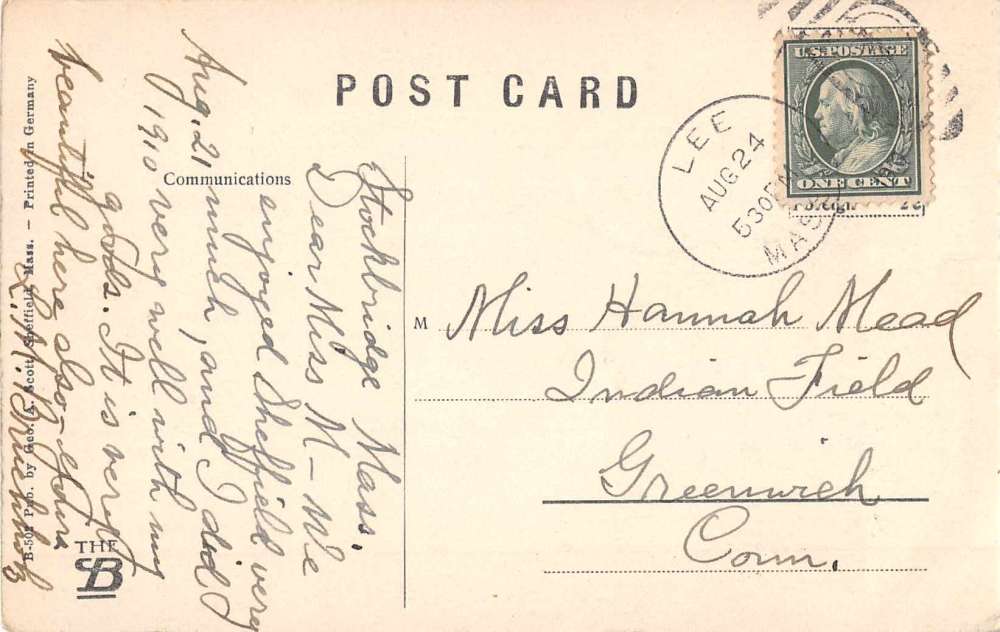 POST CARD
U.S. POSTAGE
ONE CENT
LEE
AUG 24
530 PM
MASS
Communications
Stockbridge Mass.
Dear Miss M – We
enjoyed Sheffield very
Aug. 21 much, and I did
1910 very well with my
goods. It is very
beautiful here also – Yours
B-502 Pub. by Geo. A. Scott, Sheffield, Mass. – Printed in Germany
THE
M
Miss Hannah Mead
Indian Field
Greenwich
Conn.